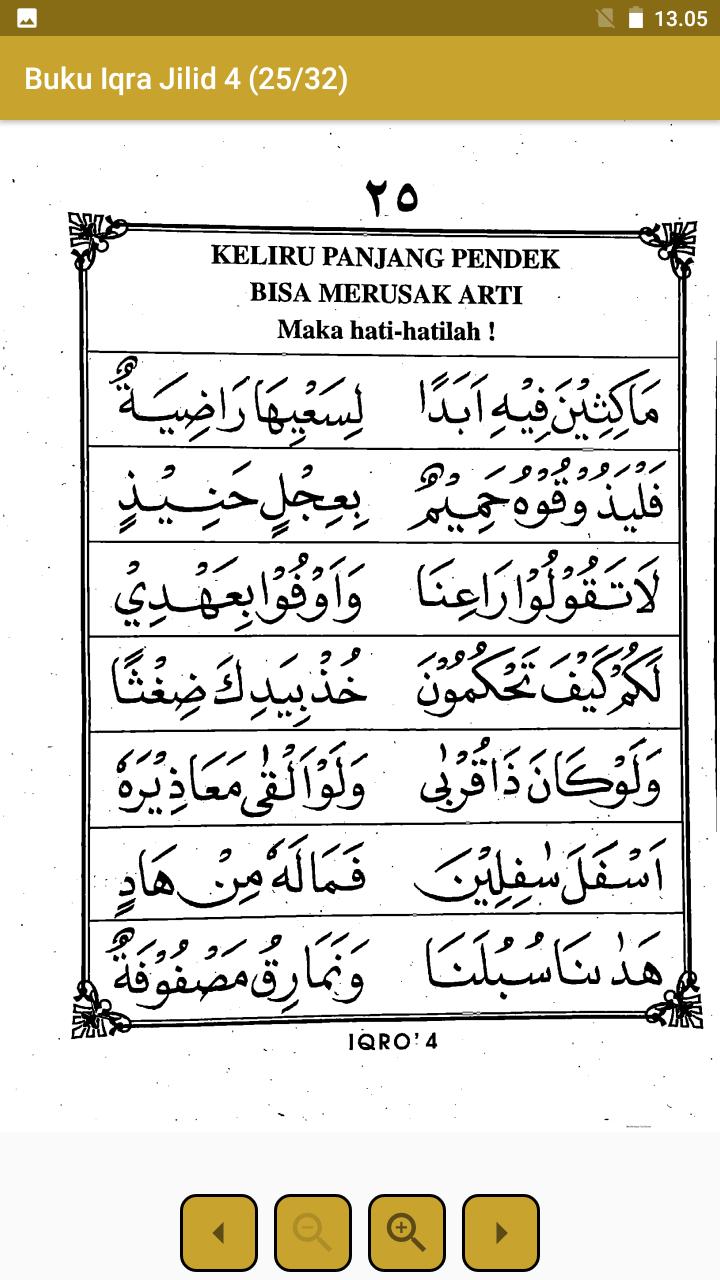 13.05
Buku Iqra Jilid 4 (25/32)
٢٥
KELIRU PANJANG PENDEK
BISA MERUSAK ARTI
Maka hati-hatilah !
مَاكِثِيْنَ فِيْهِ اَبَدًا لِسَعْيِهَا رَاضِيَةٌ
فَلْيَذُوْقُوْهُ حَمِيْمٌ بِعِجْلٍ حَنِيْذٍ
لَاتَقُوْلُوْا رَاعِنَا وَاَوْفُوْا بِعَهْدِيْ
لَكُمْ كَيْفَ تَحْكُمُوْنَ خُذْ بِيَدِكَ ضِغْثًا
وَلَوْكَانَ ذَاقُرْبٰى وَلَوْاَلْقٰى مَعَاذِيْرَهٗ
اَسْفَلَ سٰفِلِيْنَ فَمَالَهٗ مِنْ هَادٍ
هَدٰىنَا سُبُلَنَا وَنَمَارِقُ مَصْفُوْفَةٌ
IQRO' 4